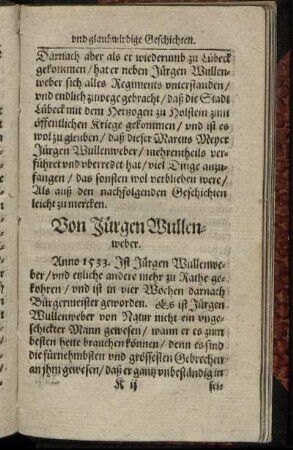 vnd glaubwirdige Geschichten.
Darnach aber als er wiederumb zu Lübeck
gekommen / hat er neben Jürgen Wullen-
weber sich alles Regiments vnterstanden /
vnd endlich zuwege gebracht / daß die Stadt
Lübeck mit dem Hertzogen zu Holstein zum
öffentlichen Kriege gekommen / vnd ist es
wol zu gleuben / daß dieser Marcus Meyer
Jürgen Wullenweber / mehrentheils ver-
führet vnd vberredet hat / viel Dinge anzu-
fangen / das sonsten wol verblieben were /
Als auß den nachfolgenden Geschichten
leicht zu mercken.
Von Jürgen Wullen-
weber.
Anno 1533. Ist Jürgen Wullenwe-
ber / vnd etzliche andere mehr zu Rathe ge-
kohren / vnd ist in vier Wochen darnach
Bürgermeister geworden. Es ist Jürgen
Wullenweber von Natur nicht ein vnge-
schickter Mann gewesen / wann er es zum
besten hette brauchen können / denn es sind
die fürnehmbsten vnd grössesten Gebrechen
an jhm gewesen / daß er gantz vnbeständig in
K ij
sei-